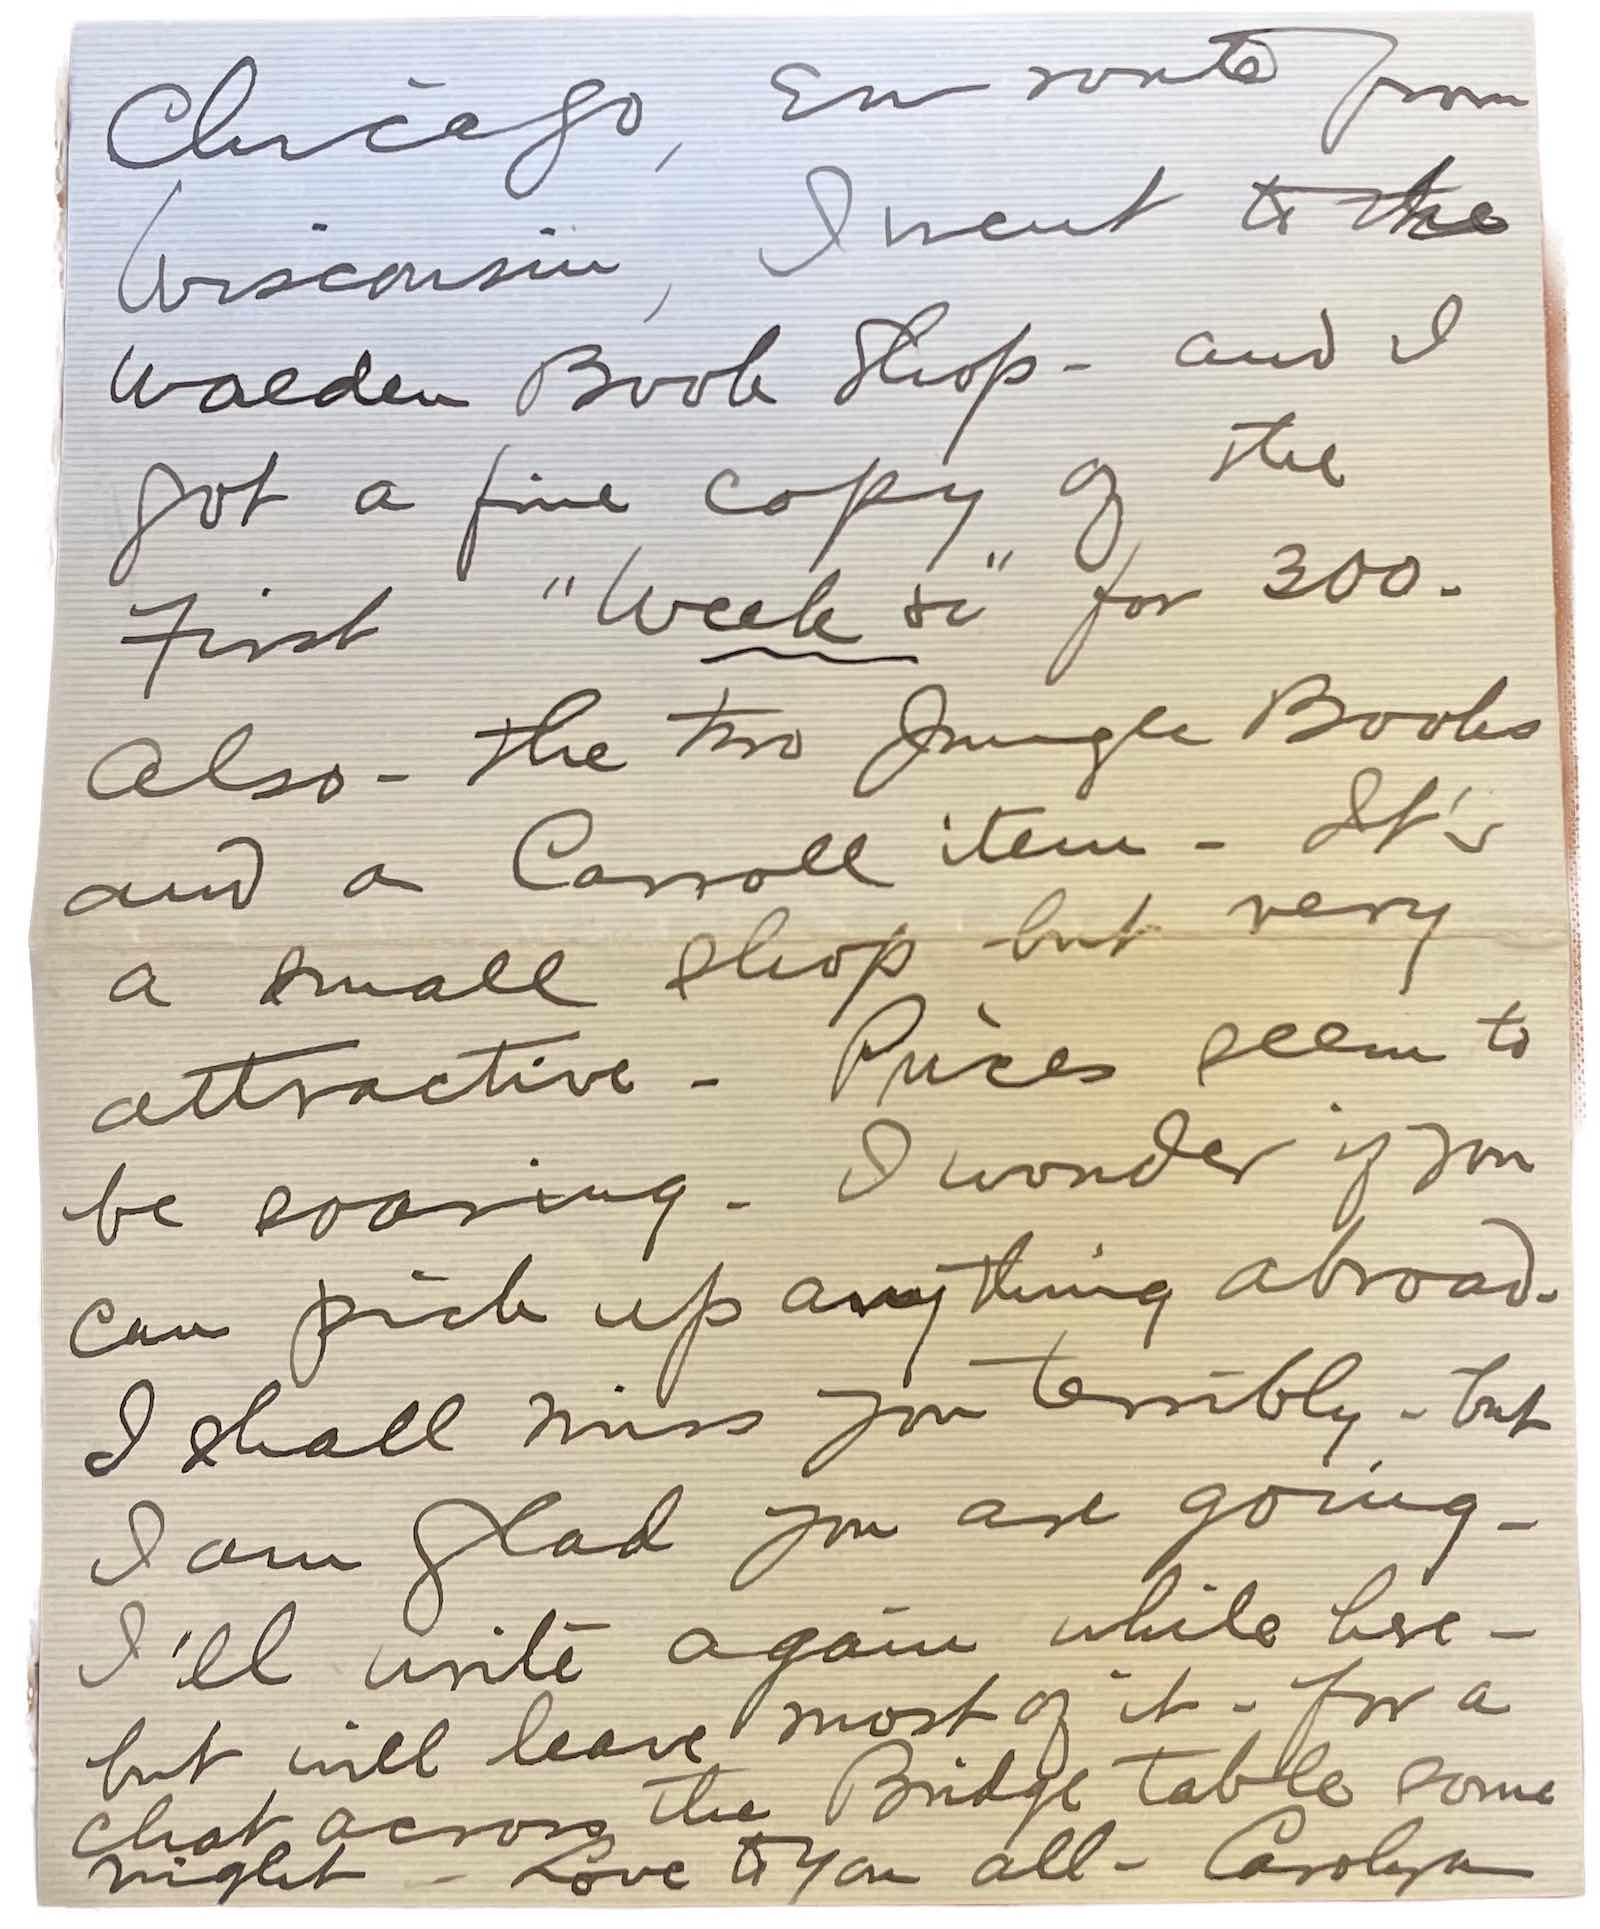 Chicago, En route from
Wisconsin, I went to the
Walden Book Shop - and I
got a fine copy of the
First "Week &c" for 300.
Also - the two Jungle Books
and a Carroll item - It's
a small shop but very
attractive - Prices seem to
be soaring - I wonder if you
can pick up anything abroad -
I shall miss you terribly - but
I am glad you are going -
I'll write again while here -
but will leave most of it - for a
chat across the Bridge table some
night - Love to you all - Carolyn